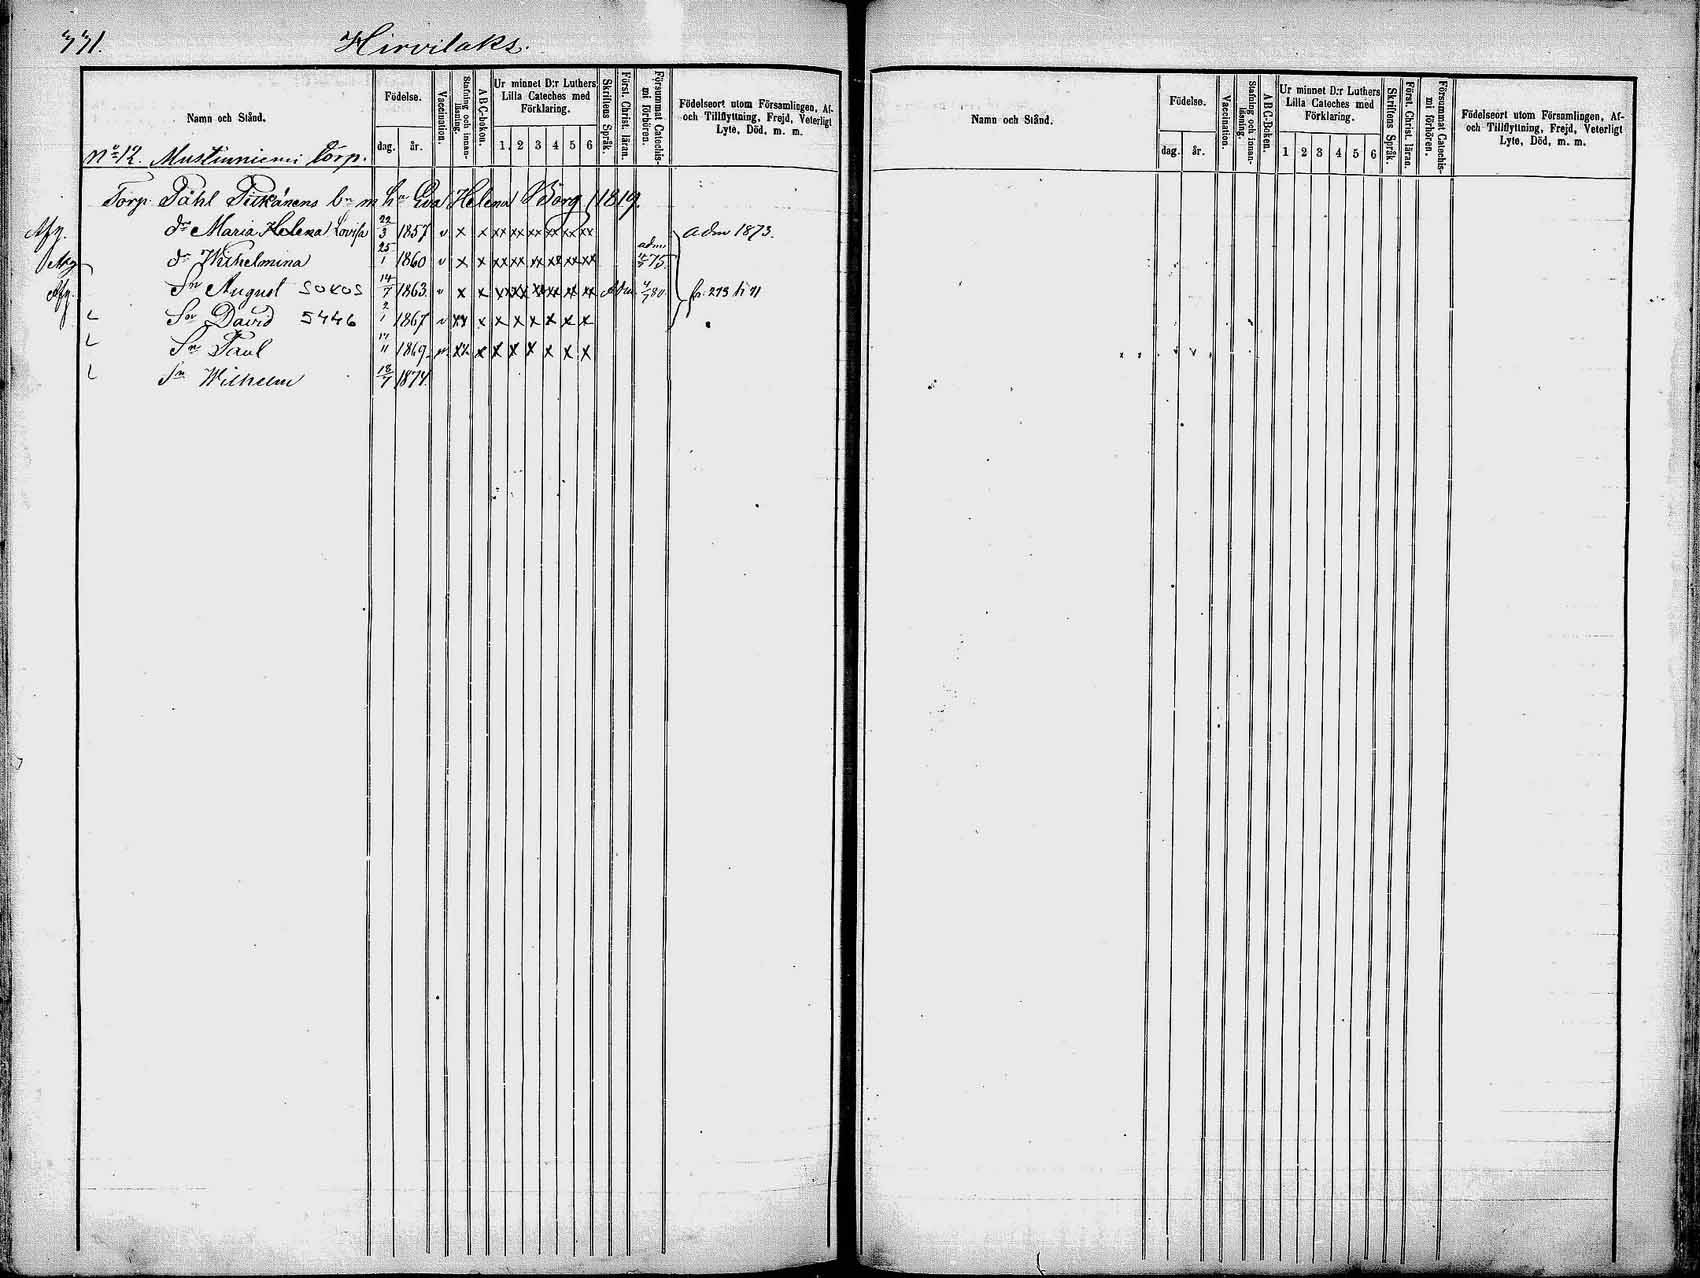 331.
Hirvilaks.
Namn och Stånd.
Födelse.
dag. år.
Vaccination.
Stafning och innan-läsning.
ABC-bokon.
Ur minnet D:r Luthers Lilla Cateches med Förklaring.
1. 2 3 4 5 6
Skriftens Språk.
Först. Christ. läran.
Försummat Catechis-mi förhören.
Födelseort utom Församlingen, Af- och Tillflyttning, Frejd, Veterligt Lyte, Död, m. m.
No 12. Mustinniemi torp.
Torp. Påhl Piikánens bn m hu Eva Helena Borg 1819.
Afg. dr Maria Helena Lovisa 22/3 1857 v x x xx xx xx xx xx xx adm 1873.
dr Wilhelmina 25/1 1860 v x x xx xx xx xx xx xx adm 75.
Afg. Sn August SOKOS 14/7 1863. v x x xx xx xx xx xx xx Adm. 80. fr. 273 h 71
Sn David 5446 2/1 1867 v xx x x x x x x x
Sn Paul 11 1869. xx x x x x x x x
Sn Wilhelm 18/7 1874.
Namn och Stånd.
Födelse.
dag. år.
Vaccination.
Stafning och innan-läsning.
ABC-Boken.
Ur minnet D:r Luthers Lilla Cateches med Förklaring.
1 2 3 4 5 6
Skriftens Språk.
Först. Christ. läran.
Försummat Catechis-mi förhören.
Födelseort utom Församlingen, Af- och Tillflyttning, Frejd, Veterligt Lyte, Död, m. m.